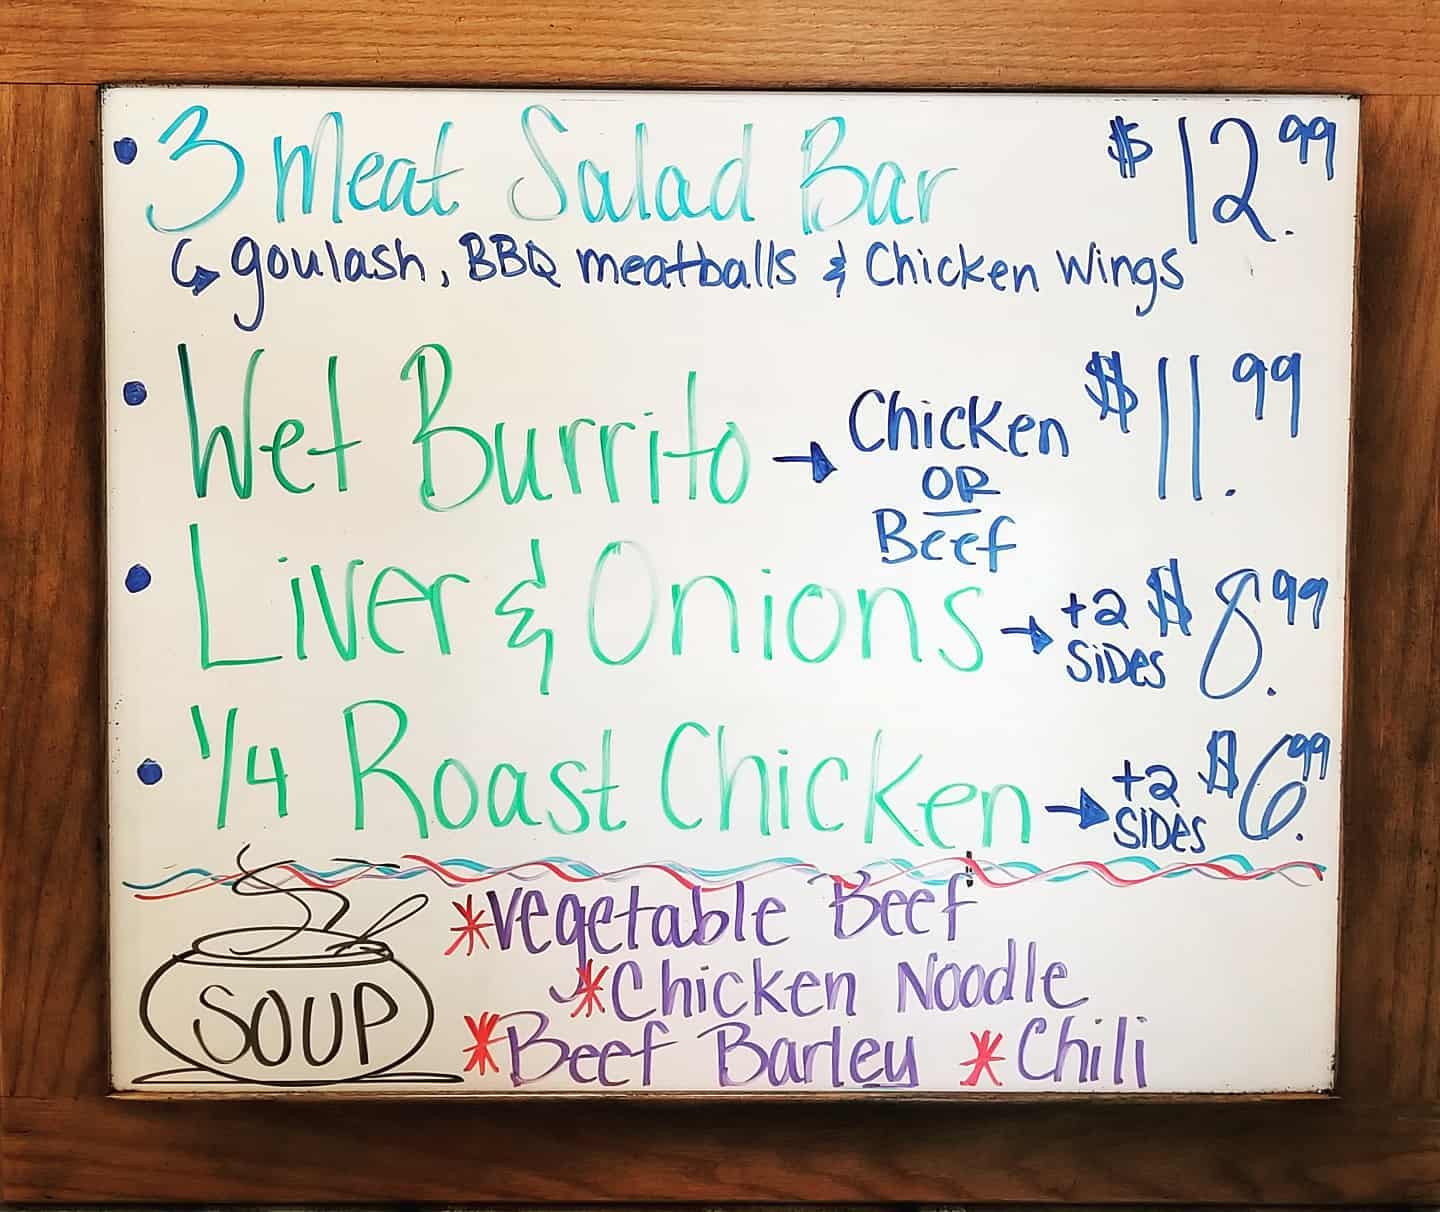 • 3 Meat Salad Bar $12.99
↳ goulash, BBQ meatballs & Chicken Wings
• Wet Burrito → Chicken OR Beef $11.99
• Liver & Onions → +2 SiDes $8.99
• 1/4 Roast Chicken → +2 SiDes $6.99
SOUP
*Vegetable Beef
*Chicken Noodle
*Beef Barley *Chili